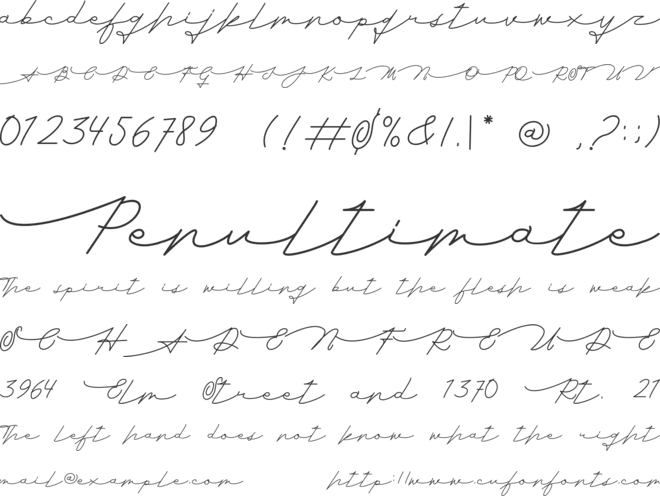 abcdefghijklmnopqrstuvwxyz
A B C D E F G H I J K L M N O P Q R S T U V
0123456789 (!#$%&/.|* @ ,?:;)
Penultimate
The spirit is willing but the flesh is weak
SCHADENFREUDE
3964 Elm Street and 1370 Rt. 21
The left hand does not know what the right
mail@example.com http://www.cufonfonts.com